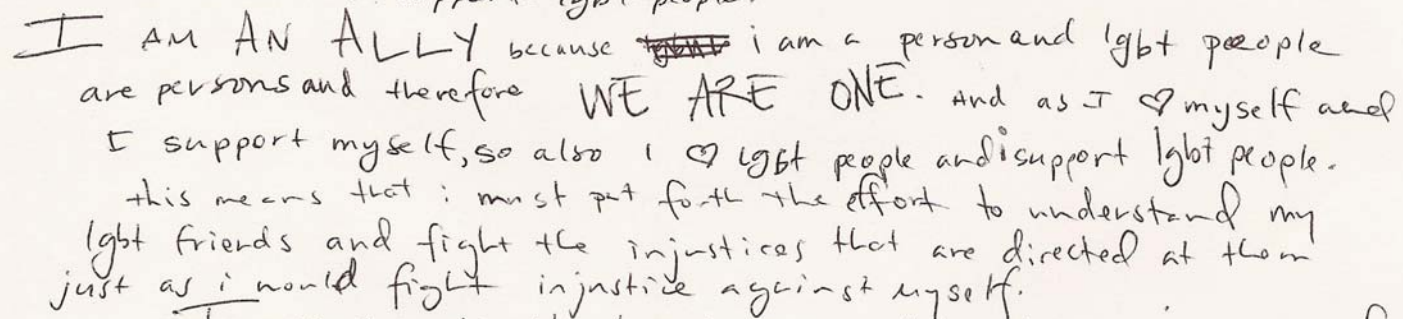 support lgbt people.
I AM AN ALLY because i am a person and lgbt peeople
are persons and therefore WE ARE ONE. And as I ♡ myself and
I support myself, so also i ♡ lgbt people and i support lgbt people.
this means that i must put forth the effort to understand my
lgbt friends and fight the injustices that are directed at them
just as i would fight injustice against myself.